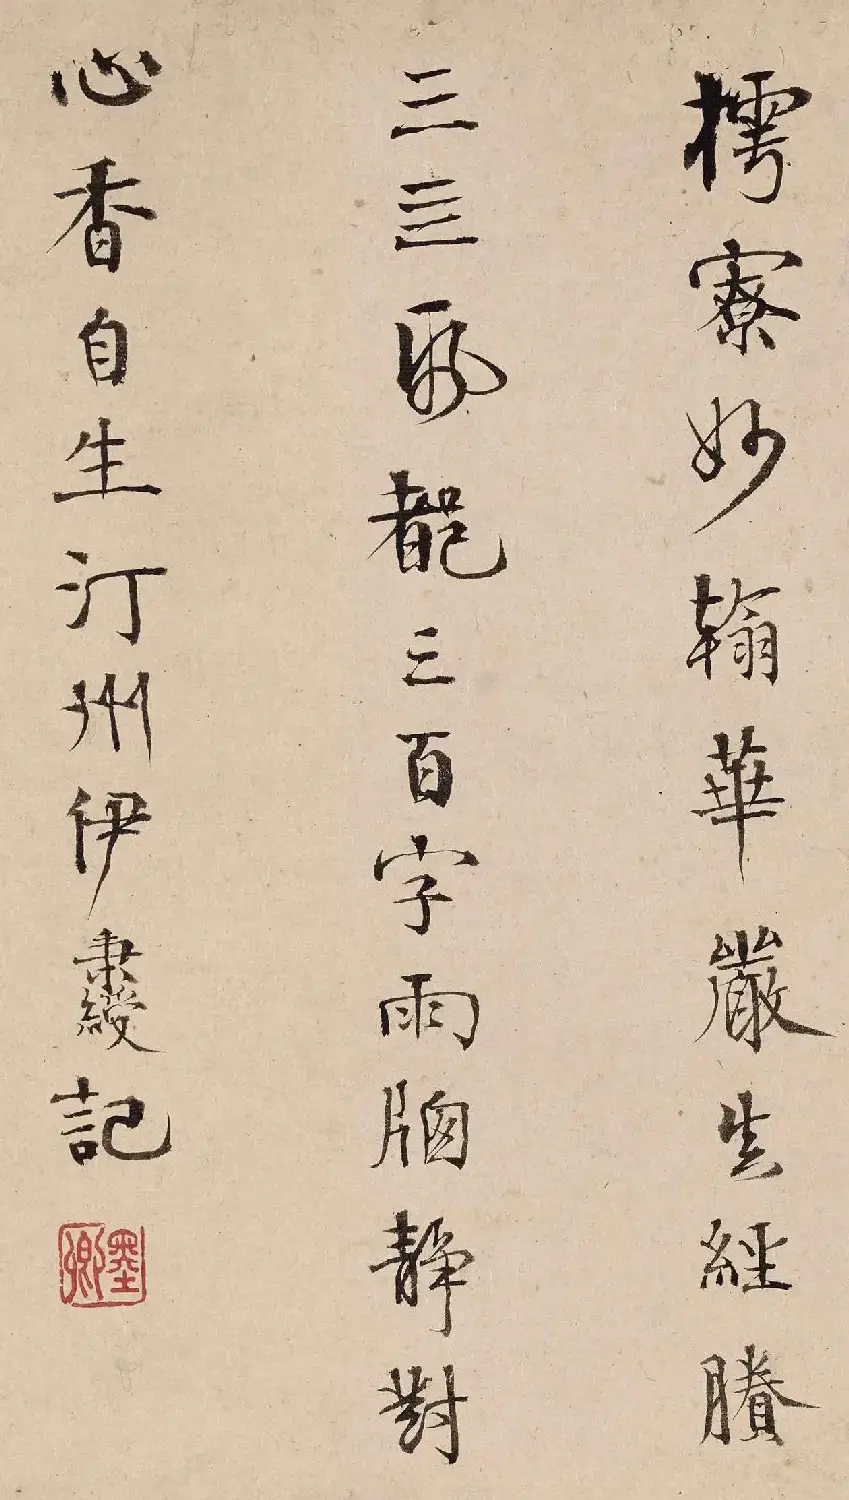 樗寮妙翰華嚴經賸
三三都三百字雨牕靜對
心香自生汀州伊秉綬記
墨卿